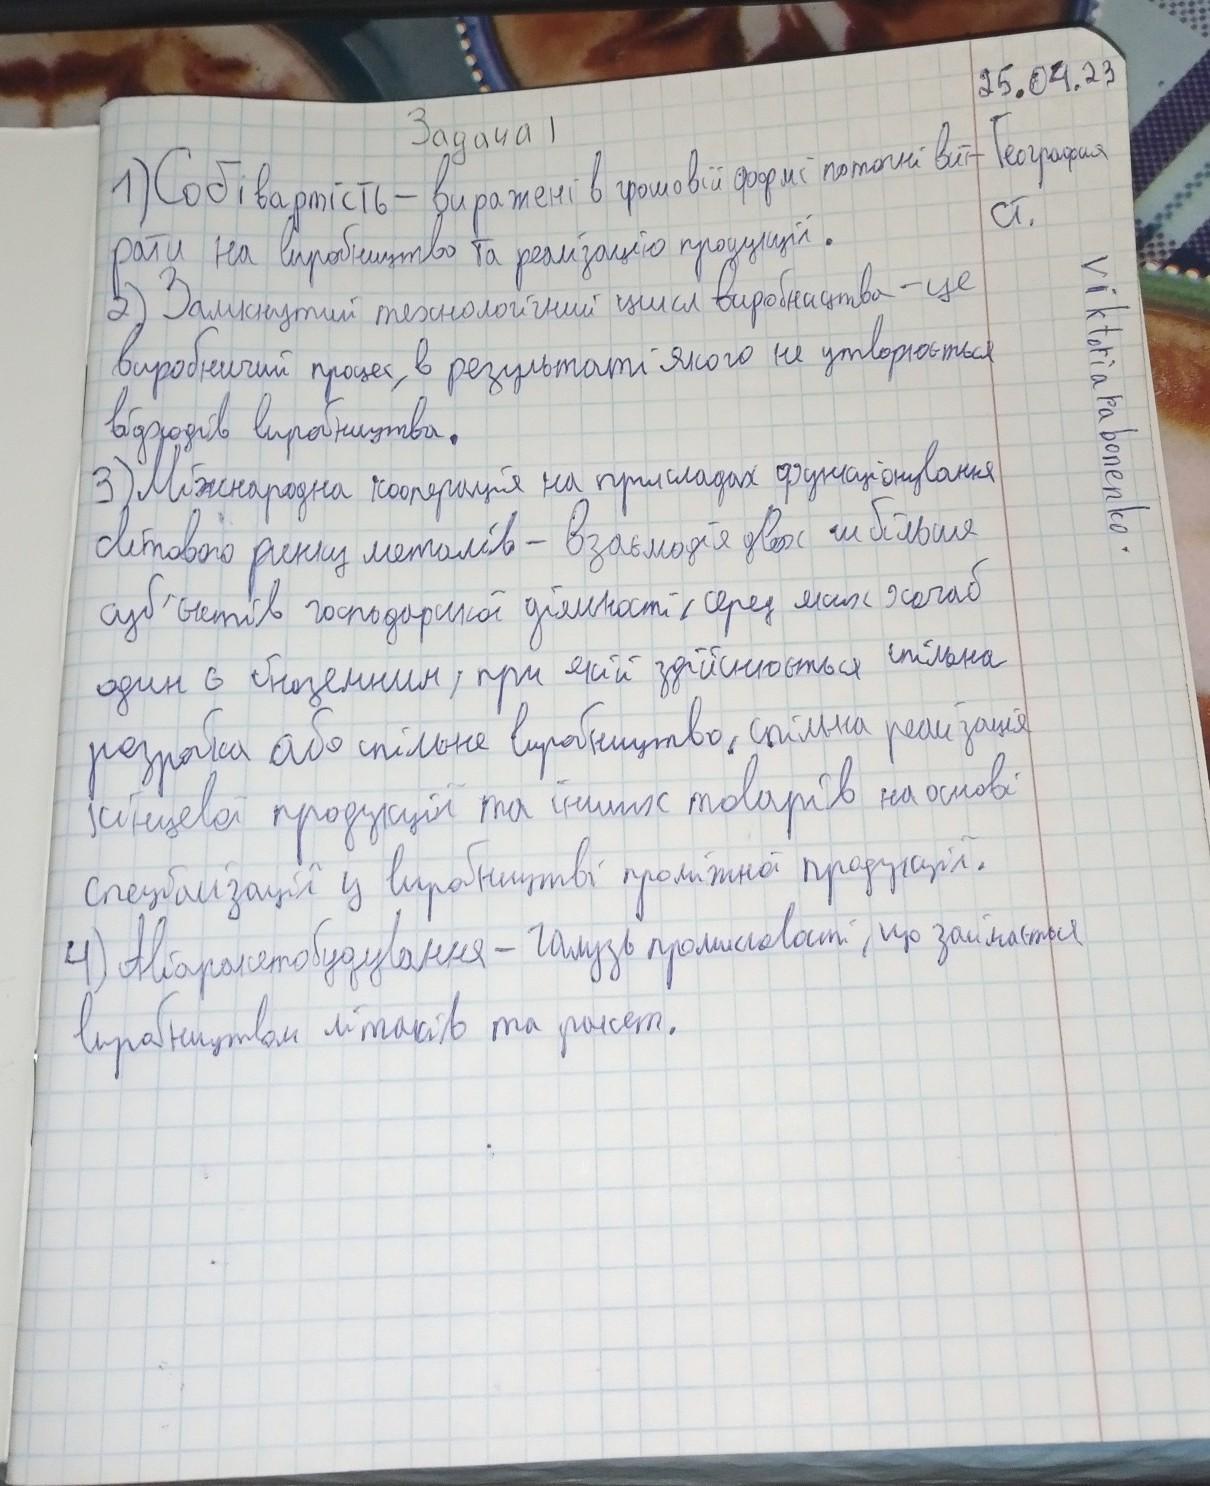 25.04.23
Задача 1
География
ст.
1) Собівартість – виражені в грошовій формі поточні вит-
рати на виробництво та реалізацію продукції.
2) Замкнутий технологічний цикл виробництва – це
виробничий процес, в результаті якого не утворюється
відходів виробництва.
3) Міжнародна кооперація на прикладах функціонування
світового ринку металів – взаємодія двох чи більше
суб'єктів господарської діяльності, серед яких хочаб
один є іноземним, при якій здійснюється спільна
розробка або спільне виробництво, спільна реалізація
кінцевої продукції та інших товарів на основі
спеціалізації у виробництві проміжної продукції.
4) Авіаракетобудування – галузь промисловості, що займається
виробництвом літаків та ракет.
Viktoriarabonenko.